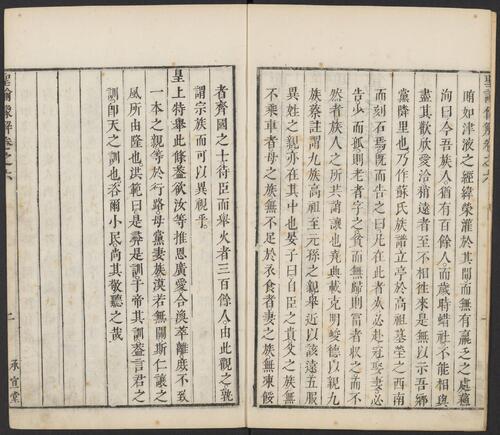 聖諭像解卷之六
脈如津液之經緯榮灌於其間而無有贏乏之處蘇
洵曰今吾族人猶有百餘人而歲時蜡社不能相與
盡其歡欣愛洽稍遠者至不相往來是無以示吾鄉
黨鄰里也乃作蘇氏族譜立亭於高祖墓塋之西南
而刻石焉旣而告之曰凡在此者死必赴冠娶妻必
告少而孤則老者字之貧而無歸則富者收之而不
然者族人之所共誚讓也堯典載克明峻德以親九
族蔡註謂九族高祖至元孫之親舉近以該遠五服
異姓之親亦在其中也晏子曰自臣之貴父之族無
不乘車者母之族無不足於衣食者妻之族無凍餒
者齊國之士待臣而舉火者三百餘人由此觀之孰
謂宗族而可以異視乎
皇上特舉此條蓋欲汝等推恩廣愛合渙萃離庶不致
一本之親等於行路母黨妻族漠若無關斯仁讓之
風所由隆也洪範曰是彝是訓于帝其訓蓋言君之
訓卽天之訓也咨爾小民尚其敬聽之哉
聖諭像解卷之六
二
承宣堂